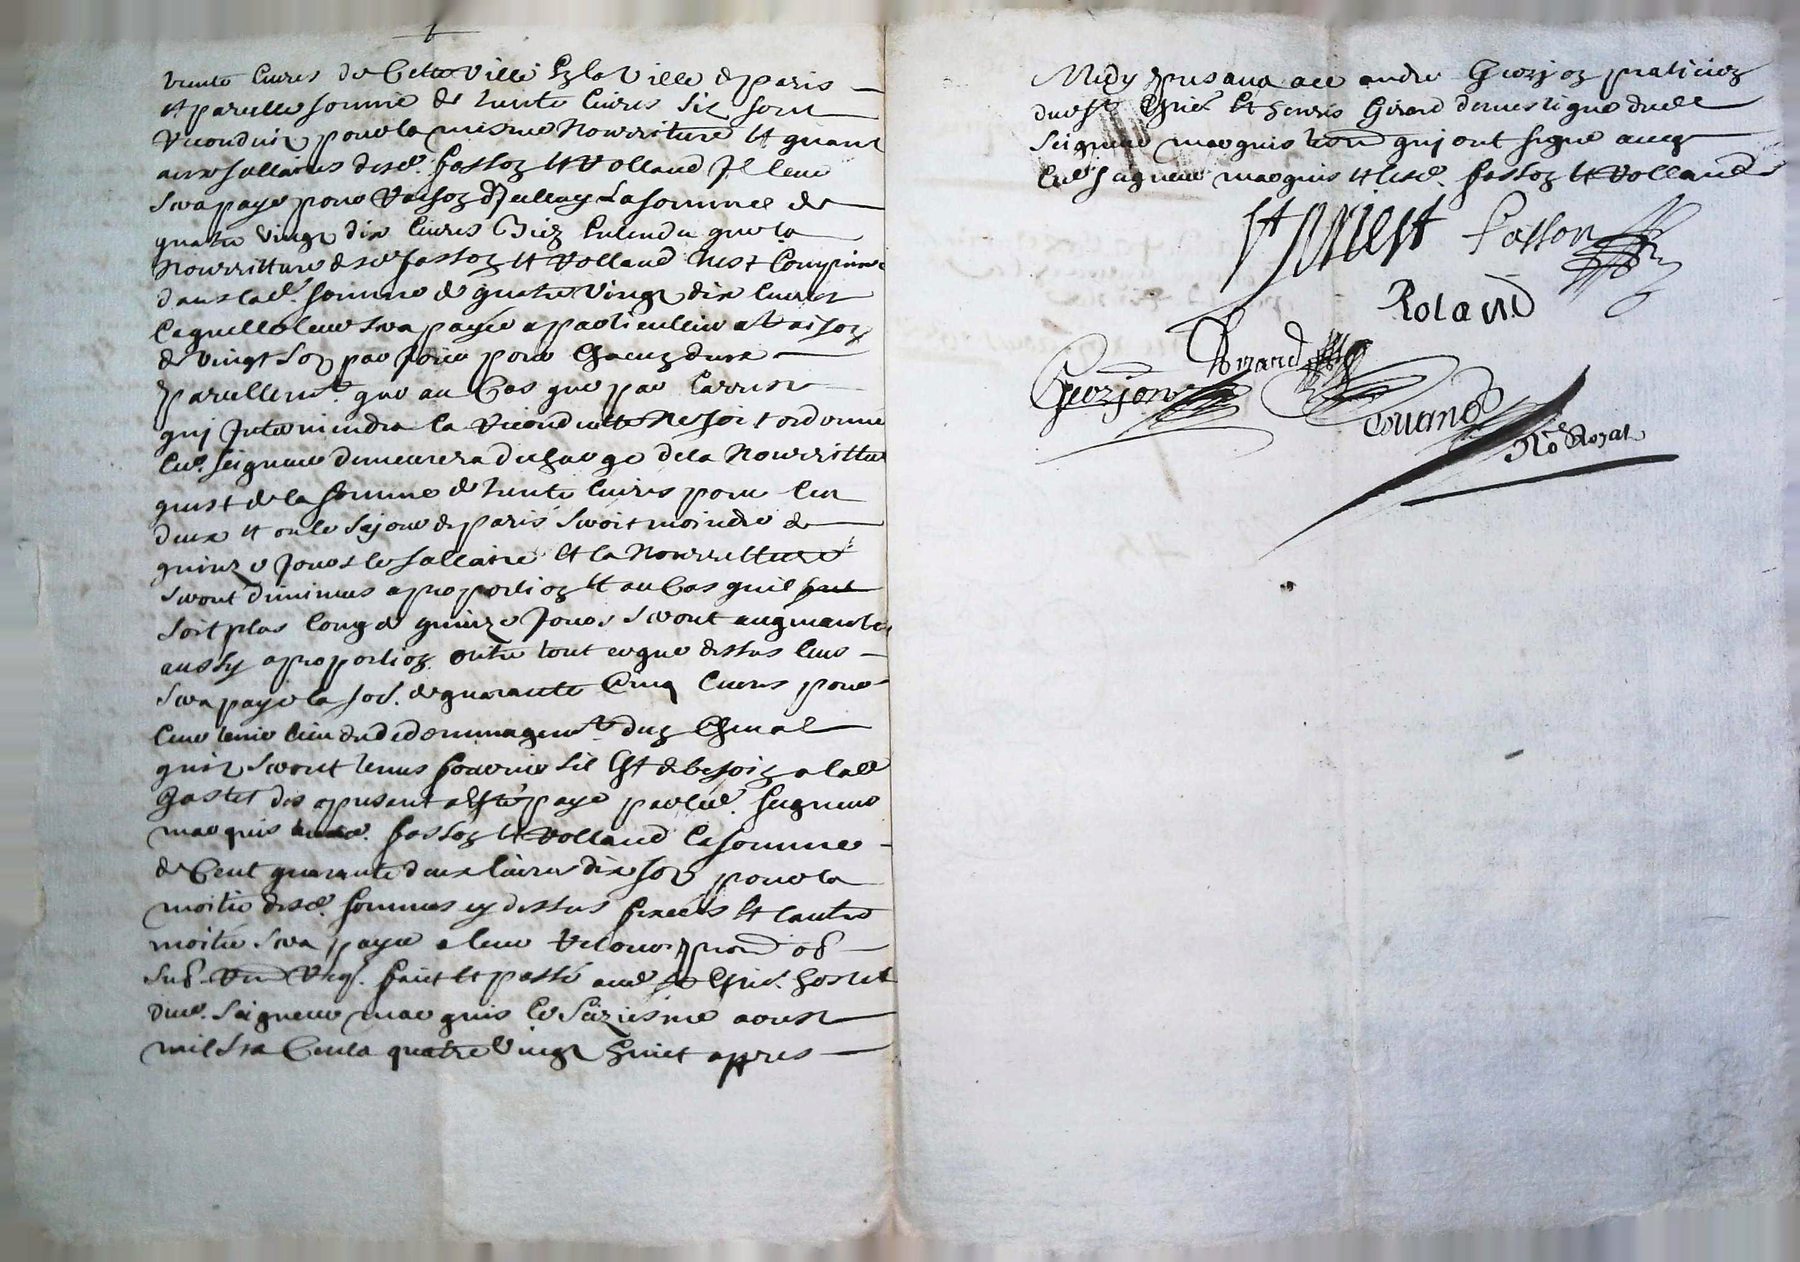 trente livres de cette ville en la ville de paris
et pareille somme de trente livres sil sont
reconduis pour la mesme nourriture et quant
aux sallaires desd. fasson et Rolland Il leur
sera payé pour raison dIceluy la somme de
quatre vingt dix livres bien entendu que la
nourritture desd fasson et Rolland nest comprinse
dans lad. somme de quatre vingt dix livres
laquelle leur sera payée a particullier a raison
de vingt sols par jour pour chacun deux
pareillemt. que au cas que par larrest
qui Interviendra la reconduitte ne soit ordonnee
led. seigneur demeurera deschargé de la nourrittur
quest de la somme de trente livres pour les
deux et ou le sejour de paris seroit moindre de
quinze jours le sallaire et la nourritture
seront diminues a proportion et au cas quil
soit plus long de quinze jours seront augmantés
aussy a proportion outre tout ce que dessus leur
sera payé la som. de quarante cinq livres pour
leur tenir lieu de dedommagemt. dun cheval
quils seront tenus fournir sil est de besoin a lad
des a presant a esté payé par led. seigneur
marquis fasson et Rolland la somme
de cent quarante deux livres dix sols pour la
moitié desd. sommes cy dessus fixées et lautre
moitié sera payée a leur retour
fait et passé hostel
dud. seigneur marquis le seiziesme aoust
mil six cents quatre vingt huict appres
Midy presans andré Gierjon praticien
dud st et Girard domestique dud
seigneur marquis qui ont signé avec
led seigneur marquis et lesd. fasson et Rolland
St priest fasson
Roland
Girard
Gierjon
Nore Royal